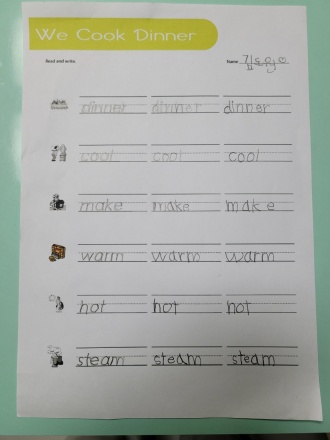 We Cook Dinner
Read and write. Name
dinner dinner dinner
cool cool cool
make make make
warm warm warm
hot hot hot
steam steam steam